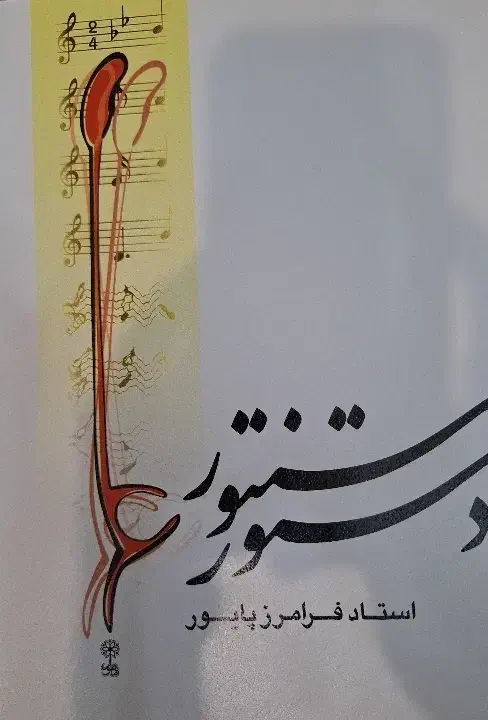 2/4
دستور سنتور
استاد فرامرز پایور